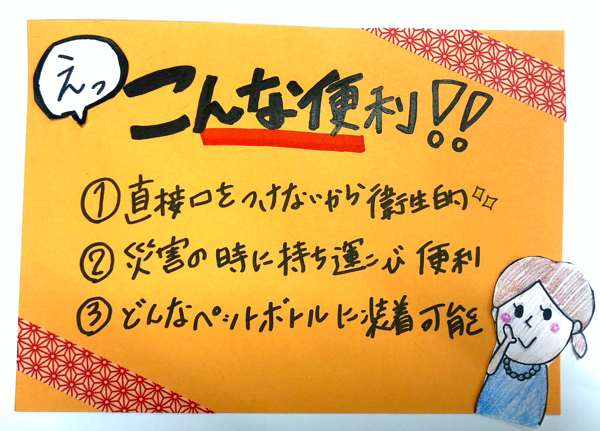 えっ
こんな便利!!
①直接口をつけないから衛生的
②災害の時に持ち運こび便利
③どんなペットボトルに装着可能